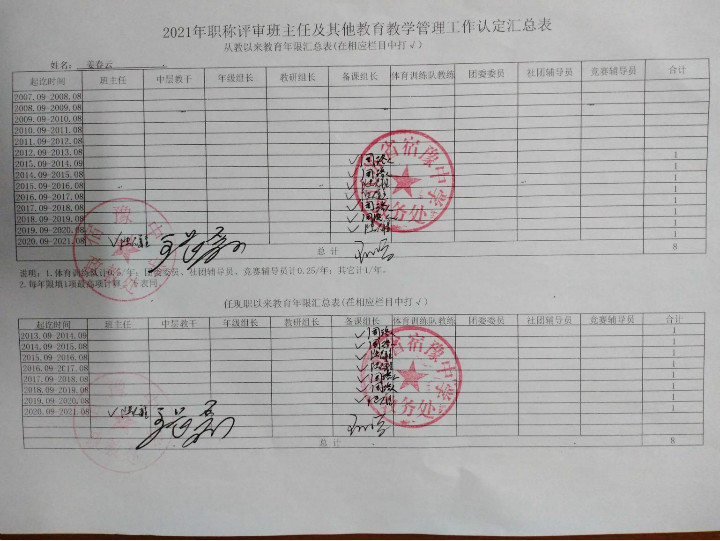 2021年职称评审班主任及其他教育教学管理工作认定汇总表
从教以来教育年限汇总表(在相应栏目中打√)
姓名: 姜春云
起讫时间 班主任 中层教干 年级组长 教研组长 备课组长 体育训练队教练 团委委员 社团辅导员 竞赛辅导员 合计
2007.09-2008.08
2008.09-2009.08
2009.09-2010.08
2010.09-2011.08
2011.09-2012.08
2012.09-2013.08
2013.09-2014.09 √ 1
2014.09-2015.08 √ 1
2015.09-2016.08 √ 1
2016.09-2017.08 √ 1
2017.09-2018.08 √ 1
2018.09-2019.08 √ 1
2019.09-2020.08 √ 1
2020.09-2021.08 √ 1
总计 8
省宿豫中学
教务处
说明: 1.体育训练队计0.5/年; 团委委员、社团辅导员、竞赛辅导员计0.25/年; 其它计1/年。
2.每年限填1项最高项计算, 下表同。
任现职以来教育年限汇总表(在相应栏目中打√)
起讫时间 班主任 中层教干 年级组长 教研组长 备课组长 体育训练队教练 团委委员 社团辅导员 竞赛辅导员 合计
2013.09-2014.09 √ 1
2014.09-2015.08 √ 1
2015.09-2016.08 √ 1
2016.09-2017.08 √ 1
2017.09-2018.08 √ 1
2018.09-2019.08 √ 1
2019.09-2020.08 √ 1
2020.09-2021.08 √ 1
总计 8
省宿豫中学
教务处